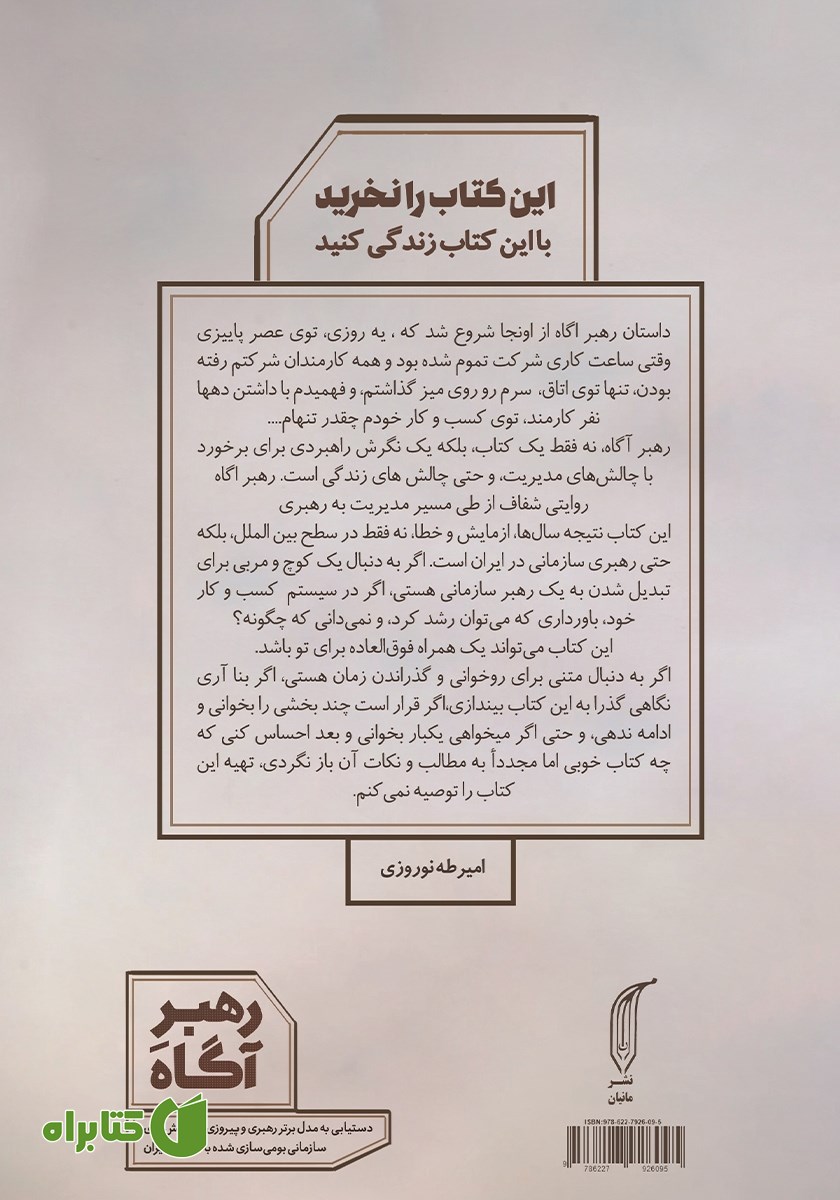 این کتاب را نخرید
با این کتاب زندگی کنید
داستان رهبر اگاه از اونجا شروع شد که ، یه روزی، توی عصر پاییزی
وقتی ساعت کاری شرکت تموم شده بود و همه کارمندان شرکتم رفته
بودن، تنها توی اتاق، سرم رو روی میز گذاشتم، و فهمیدم با داشتن دهها
نفر کارمند، توی کسب و کار خودم چقدر تنهام....
رهبر آگاه، نه فقط یک کتاب، بلکه یک نگرش راهبردی برای برخورد
با چالش‌های مدیریت، و حتی چالش های زندگی است. رهبر اگاه
روایتی شفاف از طی مسیر مدیریت به رهبری
این کتاب نتیجه سال‌ها، ازمایش و خطا، نه فقط در سطح بین الملل، بلکه
حتی رهبری سازمانی در ایران است. اگر به دنبال یک کوچ و مربی برای
تبدیل شدن به یک رهبر سازمانی هستی، اگر در سیستم کسب و کار
خود، باورداری که می‌توان رشد کرد، و نمی‌دانی که چگونه؟
این کتاب می‌تواند یک همراه فوق‌العاده برای تو باشد.
اگر به دنبال متنی برای روخوانی و گذراندن زمان هستی، اگر بنا آری
نگاهی گذرا به این کتاب بیندازی،اگر قرار است چند بخشی را بخوانی و
ادامه ندهی، و حتی اگر میخواهی یکبار بخوانی و بعد احساس کنی که
چه کتاب خوبی اما مجدداً به مطالب و نکات آن باز نگردی، تهیه این
کتاب را توصیه نمی‌کنم.
امیرطه نوروزی
نشر
مانیان
ISBN:978-622-7926-09-5
9 786227 926095
رهبر
آگاه
دستیابی به مدل برتر رهبری و پیروزی
سازمانی بومی‌سازی شده ایران
کتابراه